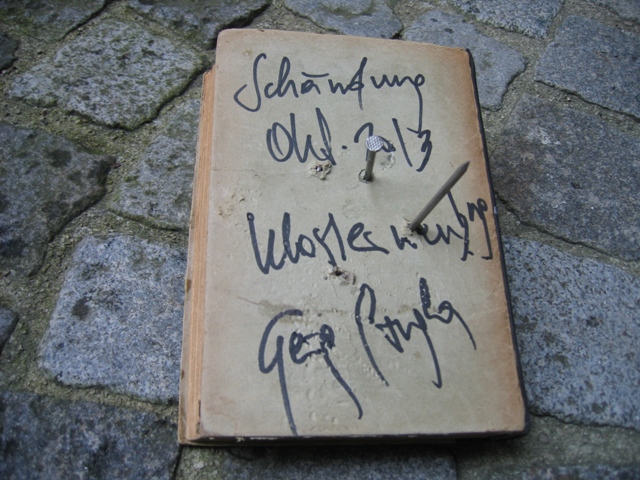 Schändung
Okt. 2013
Klosterneubg
Georg